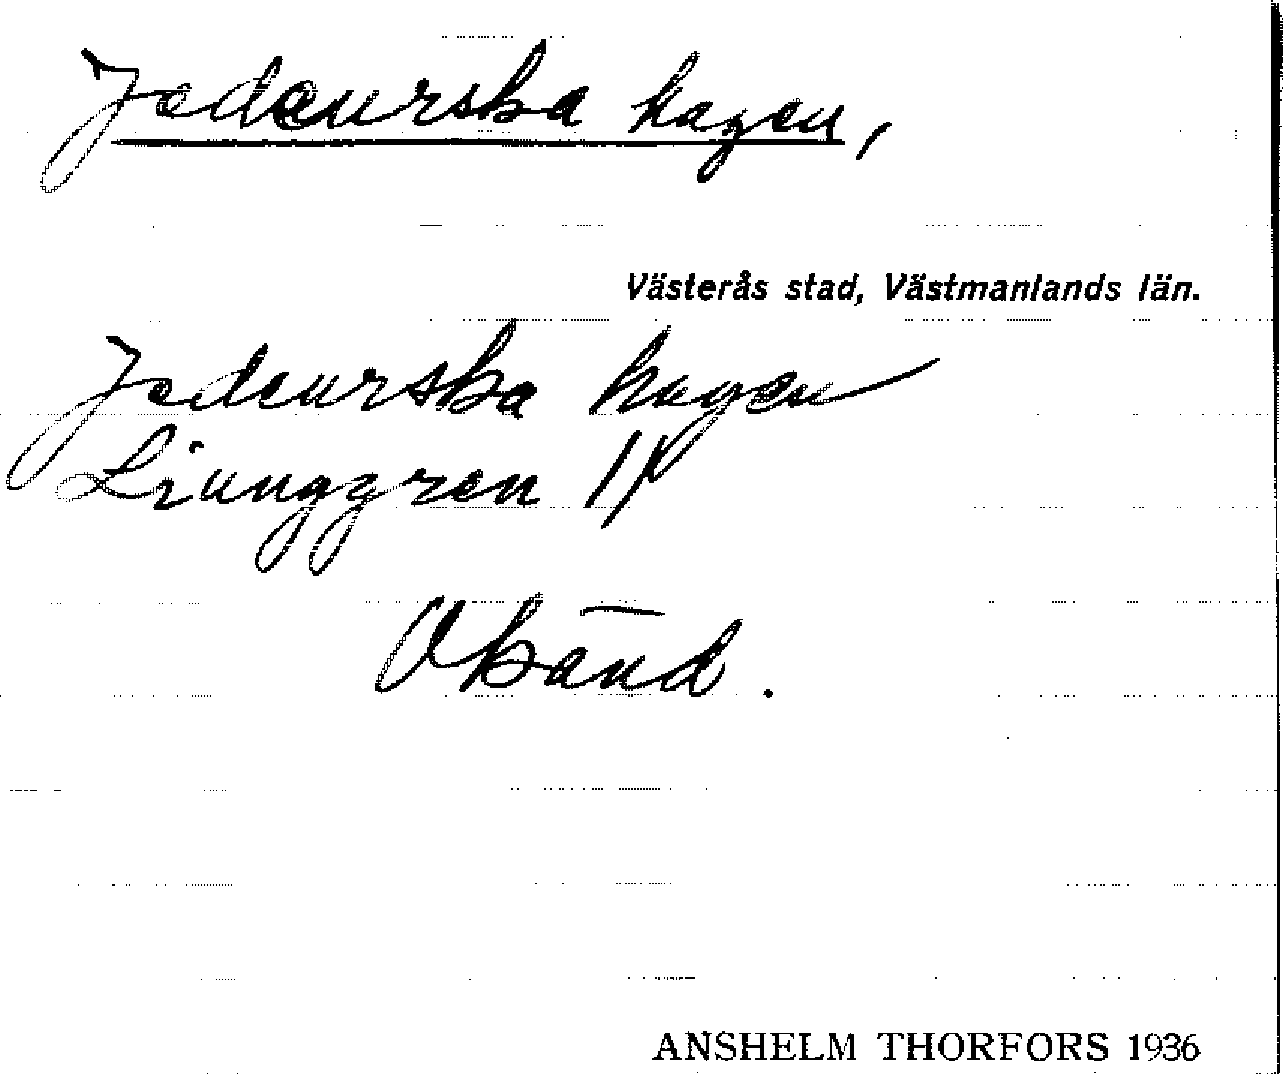 Jedeurska hagen,
Västerås stad, Västmanlands län.
Jedeurska hagen
Ljunggren
Okänd.
ANSHELM THORFORS 1936